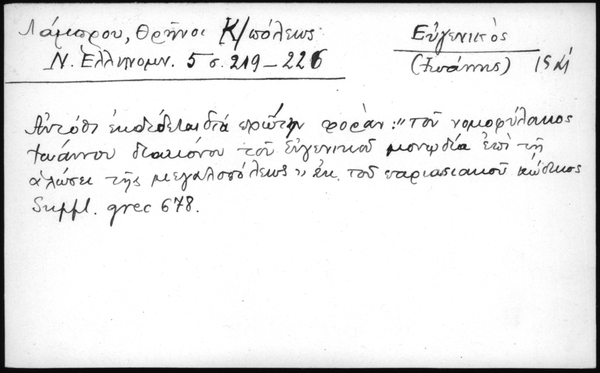 Λάμπρου, Θρῆνοι Κ/πόλεως
Ν. Ἑλληνομν. 5 σ. 219-226
Εὐγενικὸς
(Ἰωάννης)
Αὐτόθι ἐκδίδεται διὰ πρώτην φορὰν: "τοῦ νομοφύλακος
Ἰωάννου διακόνου τοῦ Εὐγενικοῦ μονῳδία ἐπὶ τῇ
ἁλώσει τῆς μεγαλοπόλεως" ἐκ τοῦ παρισιακοῦ κώδικος
Suppl. grec 678.